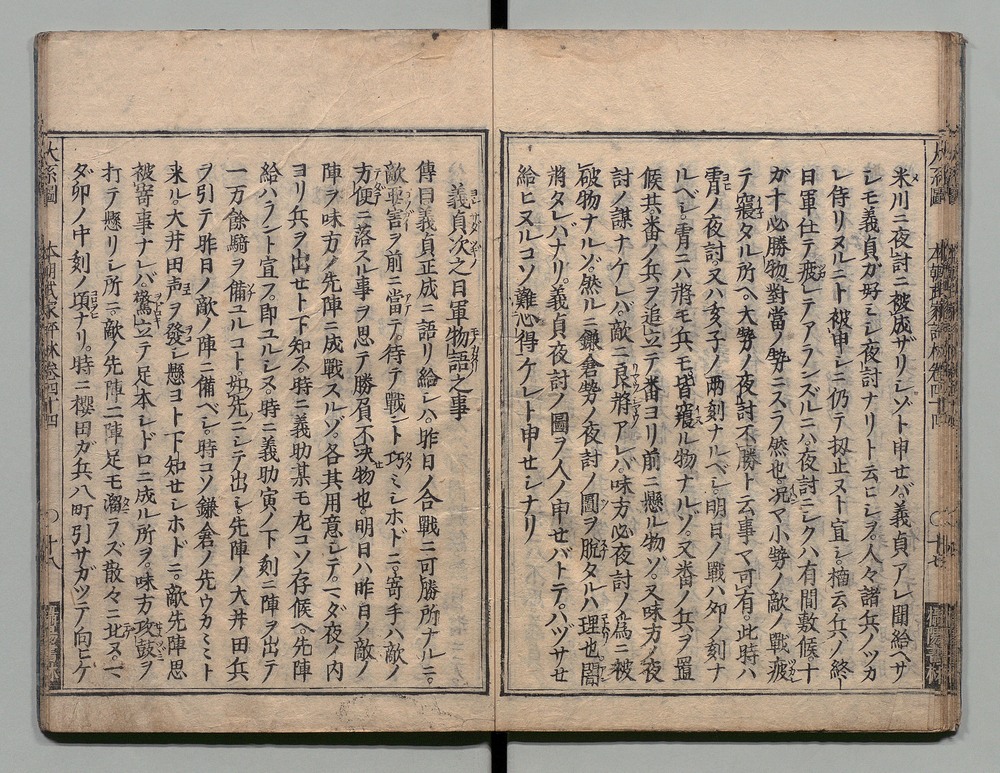 米川ニ夜討ニ被成ザリシゾト申セバ。義貞アレ聞給ヘサ
シモ義貞ガ好ミシ夜討ナリト云ヒシヲ。人々諸兵ノツカ
レ侍リヌルニト被申シニ仍テ扨止ヌト宣シ。楠云兵ノ終
日軍仕テ疲レテアランズルニハ夜討ニシクハ有間敷候十
ガ十必勝物。對當ノ勢ニスラ然也。况マ小勢ノ敵ノ戰疲
テ寢タル所ヘ。大勢ノ夜討不勝ト云事マ可有。此時ハ
霄ノ夜討。又ハ亥子ノ兩刻ナルベシ。明日ノ戰ハ夘ノ刻ナ
ルベシ。霄ニハ將モ兵モ。皆寢ル物ナルゾ。又番ノ兵ヲ置
候共。番ノ兵ヲ追立テ番ヨリ前ニ懸ル物ゾ。又味方ノ夜
討ノ謀ナケレバ。敵ニ良將アレバ味方必夜討ノ為ニ被
破物ナルゾ。然ルニ鎌倉勢ノ夜討ノ圖ヲ脫タルハ理也闇
將タレハナリ。義貞夜討ノ圖ヲ人ノ申セバトテ。ハヅサセ
給ヒヌルコソ難心得ケレト申セシナリ
義貞次之日軍物語之事
傳曰義貞正成ニ語リ給シハ。昨日ノ合戰ニ可勝所ナルニ。
敵要害ヲ前ニ當テ。待テ戰シト巧ミシホドニ。寄手ハ敵ノ
方便ニ落スル事ヲ思テ勝負不決物也。明日ハ昨日ノ敵ノ
陣ヲ味方ノ先陣ニ成戰スルゾ。各其用意シテ。マダ夜ノ内
ヨリ兵ヲ出セト下知ス。時ニ義助某モ左コソ存候ヘ。先陣
給ハラント宣フ。即ユルシヌ。時ニ義助寅ノ下刻ニ陣ヲ出テ
一万餘騎ヲ備ユルコト。如先ニシテ出シ。先陣ノ大井田兵
ヲ引テ昨日ノ敵ノ陣ニ備ベシ。時コソ鎌倉ノ先ウカミミト
來ル。大井田声ヲ發シ懸ヨト下知セシホドニ。敵先陣思
被寄事ナレバ。驚立テ足本シドロニ成ル所ヲ。味方攻鼓ヲ
打テ懸リシ所ニ。敵ノ先陣二陣足モ溜ラズ散々ニ北ヌ。マ
ダ卯ノ中刻ノ頃ナリ。時ニ櫻田ガ兵八町引サガツテ向ヒゲ
大系圖
本朝武家評林卷四十四
〇十八